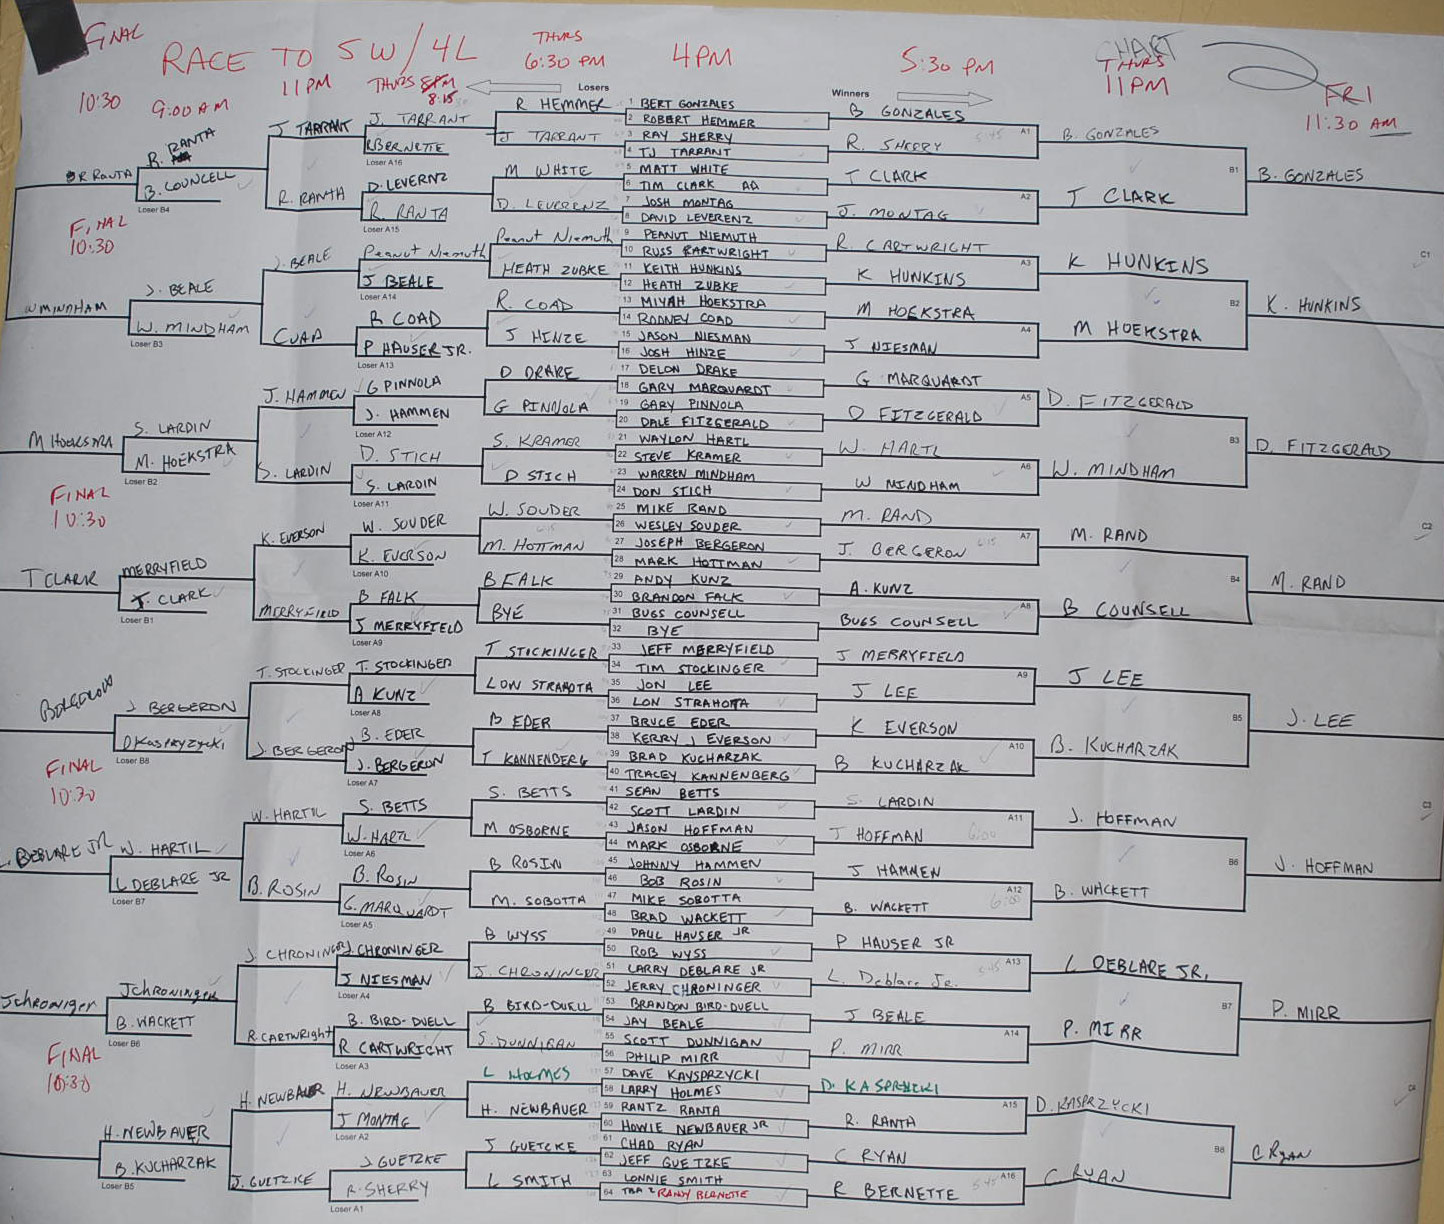 FINAL
RACE TO 5W/4L
THURS
6:30 PM
4PM
5:30 PM
CHART
THURS
11PM
FRI
11:30 AM
10:30
9:00 AM
11PM
THURS 8PM
8:15
Losers
Winners
R. RANTA
W MINDHAM
M HOEKSTRA
T CLARK
BERGERON
L. DEBLARE JR
J Chroniger
FINAL
10:30
FINAL
10:30
FINAL
10:30
FINAL
10:30
R. RANTA
B. COUNCELL
Loser B4
J. BEALE
W. MINDHAM
Loser B3
S. LARDIN
M. HOEKSTRA
Loser B2
MERRYFIELD
T. CLARK
Loser B1
J BERGERON
D KASPRZYCKI
Loser B8
W. HARTIL
L DEBLARE JR
Loser B7
J Chroninger
B. WACKETT
Loser B6
H. NEWBAUER
B. KUCHARZAK
Loser B5
J TARRANT
R. RANTA
J. BEALE
COAD
J. HAMMEN
S. LARDIN
K. EVERSON
MERRYFIELD
T. STOCKINGER
J. BERGERON
W. HARTIL
B. ROSIN
J. CHRONINGER
R. CARTWRIGHT
H. NEWBAUER
J. GUETZKE
J. TARRANT
R BERNETTE
Loser A16
D. LEVERNZ
R. RANTA
Loser A15
Peanut Niemuth
J BEALE
Loser A14
R COAD
P HAUSER JR.
Loser A13
G PINNOLA
J. HAMMEN
Loser A12
D. STICH
S. LARDIN
Loser A11
W. SOUDER
K. EVERSON
Loser A10
B FALK
J MERRYFIELD
Loser A9
T. STOCKINGER
A KUNZ
Loser A8
B. EDER
J. BERGERON
Loser A7
S. BETTS
W. HARTL
Loser A6
B. ROSIN
G. MARQUARDT
Loser A5
J. CHRONINGER
J NIESMAN
Loser A4
B. BIRD-DUELL
R CARTWRIGHT
Loser A3
H. NEWBAUER
J MONTAG
Loser A2
J. GUETZKE
R. SHERRY
Loser A1
R HEMMER
J TARRANT
M WHITE
D. LEVERENZ
Peanut Niemuth
HEATH ZUBKE
R. COAD
J HINZE
D DRAKE
G PINNOLA
S. KRAMER
D STICH
W. SOUDER
M. HOTTMAN
B FALK
BYE
T STOCKINGER
LON STRAHOTA
B EDER
T KANNENBERG
S. BETTS
M OSBORNE
B ROSIN
M. SOBOTTA
B WYSS
J. CHRONINGER
B BIRD-DUELL
S. DUNNIGAN
L HOLMES
H. NEWBAUER
J GUETZKE
L SMITH
1 BERT GONZALES
2 ROBERT HEMMER
3 RAY SHERRY
4 TJ TARRANT
5 MATT WHITE
6 TIM CLARK
7 JOSH MONTAG
8 DAVID LEVERENZ
9 PEANUT NIEMUTH
10 RUSS RARTWRIGHT
11 KEITH HUNKINS
12 HEATH ZUBKE
13 MIYAH HOEKSTRA
14 RODNEY COAD
15 JASON NIESMAN
16 JOSH HINZE
17 DELON DRAKE
18 GARY MARQUARDT
19 GARY PINNOLA
20 DALE FITZGERALD
21 WAYLON HARTL
22 STEVE KRAMER
23 WARREN MINDHAM
24 DON STICH
25 MIKE RAND
26 WESLEY SOUDER
27 JOSEPH BERGERON
28 MARK HOTTMAN
29 ANDY KUNZ
30 BRANDON FALK
31 BUGS COUNSELL
32 BYE
33 JEFF MERRYFIELD
34 TIM STOCKINGER
35 JON LEE
36 LON STRAHOTA
37 BRUCE EDER
38 KERRY J EVERSON
39 BRAD KUCHARZAK
40 TRACEY KANNENBERG
41 SEAN BETTS
42 SCOTT LARDIN
43 JASON HOFFMAN
44 MARK OSBORNE
45 JOHNNY HAMMEN
46 BOB ROSIN
47 MIKE SOBOTTA
48 BRAD WACKETT
49 PAUL HAUSER JR
50 ROB WYSS
51 LARRY DEBLARE JR
52 JERRY CHRONINGER
53 BRANDON BIRD-DUELL
54 JAY BEALE
55 SCOTT DUNNIGAN
56 PHILIP MIRR
57 DAVE KAYSPRZYCKI
58 LARRY HOLMES
59 RANTZ RANTA
60 HOWIE NEWBAUER JR
61 CHAD RYAN
62 JEFF GUETZKE
63 LONNIE SMITH
64 RANDY BERNETTE
B GONZALES
R. SHERRY
A1
T CLARK
J. MONTAG
A2
R. CARTWRIGHT
K HUNKINS
A3
M HOEKSTRA
J NIESMAN
A4
G MARQUARDT
D FITZGERALD
A5
W. HARTL
W MINDHAM
A6
M. RAND
J. BERGERON
A7
A. KUNZ
BUGS COUNSELL
A8
J MERRYFIELD
J LEE
A9
K EVERSON
B KUCHARZAK
A10
S. LARDIN
J HOFFMAN
A11
J HAMMEN
B. WACKETT
A12
P HAUSER JR
L. Deblare Jr.
A13
J BEALE
P. MIRR
A14
D. KASPRZICKI
R. RANTA
A15
C RYAN
R BERNETTE
A16
B. GONZALES
T CLARK
B1
K HUNKINS
M HOEKSTRA
B2
D. FITZGERALD
W. MINDHAM
B3
M. RAND
B COUNSELL
B4
J LEE
B. KUCHARZAK
B5
J. HOFFMAN
B. WACKETT
B6
L DEBLARE JR.
P. MIRR
B7
D. KASPRZYCKI
C RYAN
B8
B. GONZALES
K. HUNKINS
C1
D. FITZGERALD
M. RAND
C2
J. LEE
J. HOFFMAN
C3
P. MIRR
C RYAN